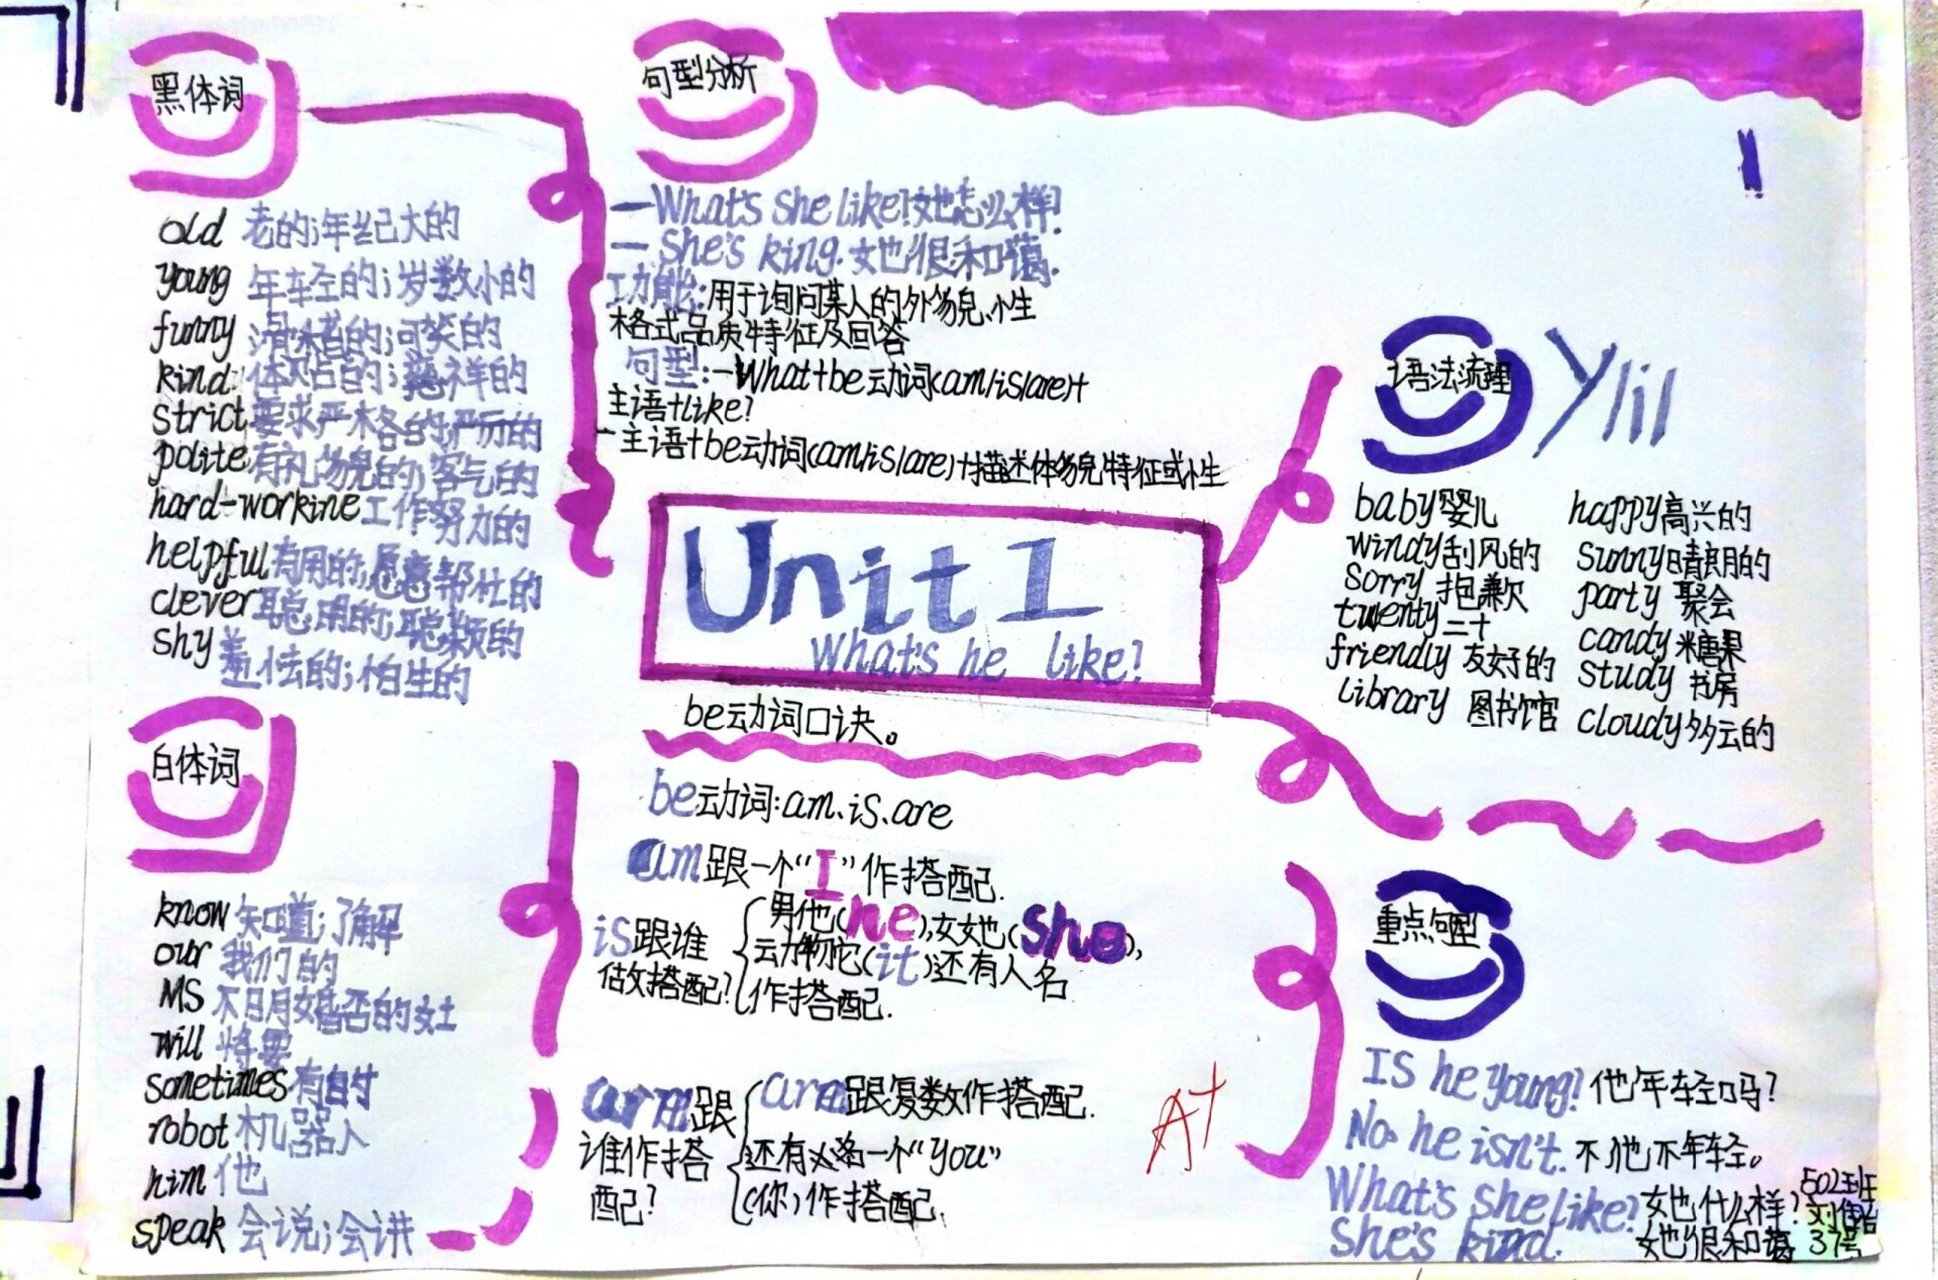 黑体词
old 老的;年纪大的
young 年轻的;岁数小的
funny 滑稽的;可笑的
kind 体贴的;慈祥的
strict 要求严格的;严厉的
polite 有礼貌的;客气的
hard-workine 工作努力的
helpful 有用的;愿意帮忙的
clever 聪明的;聪颖的
shy 羞怯的;怕生的
白体词
know 知道;了解
our 我们的
MS 不明婚否的女士
will 将要
sometimes 有时
robot 机器人
him 他
speak 会说;会讲
句型分析
—What's she like?她怎么样!
— She's king.她很和蔼.
功能:用于询问某人的外貌、性
格式品质特征及回答
句型:-What+be动词(am/is/are)+
主语+like?
-主语+be动词(am/is/are)+描述体貌特征或性
Unit 1
What's he like?
be动词口诀。
be动词:am、is、are
am跟一个“I”作搭配.
is跟谁
做搭配?
男他(he),女她(she),
动物它(it)还有人名
作搭配.
arm跟
谁作搭
配?
arm跟复数作搭配.
还有一个“you”
(你)作搭配.
A+
语法流理
Ylil
baby婴儿
windy刮风的
sorry 抱歉
twenty 二十
friendly 友好的
library 图书馆
happy高兴的
sunny晴朗的
party 聚会
candy 糖果
study 书房
cloudy多云的
重点句型
IS he young? 他年轻吗?
No. he isn't. 不,他不年轻。
What's she like? 她什么样?
She's kind. 她很和蔼
502班
37号